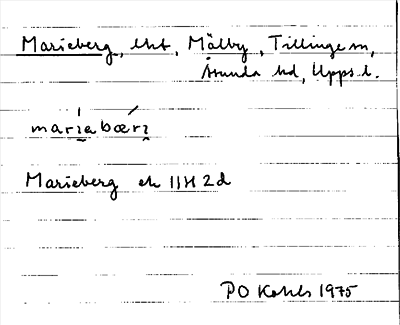 Marieberg, lht, Mälby, Tillinge sn,
Åsunda hd, Upps l.
marìabærı
Marieberg ek 11H 2d
PO Kohls 1975